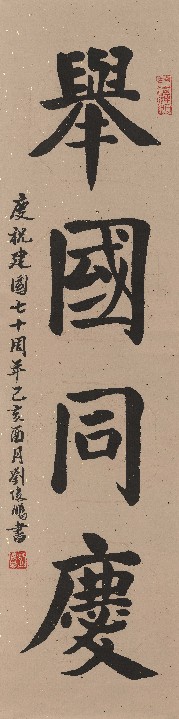 舉國同慶
慶祝建國七十周年己亥酉月劉俊鵬書